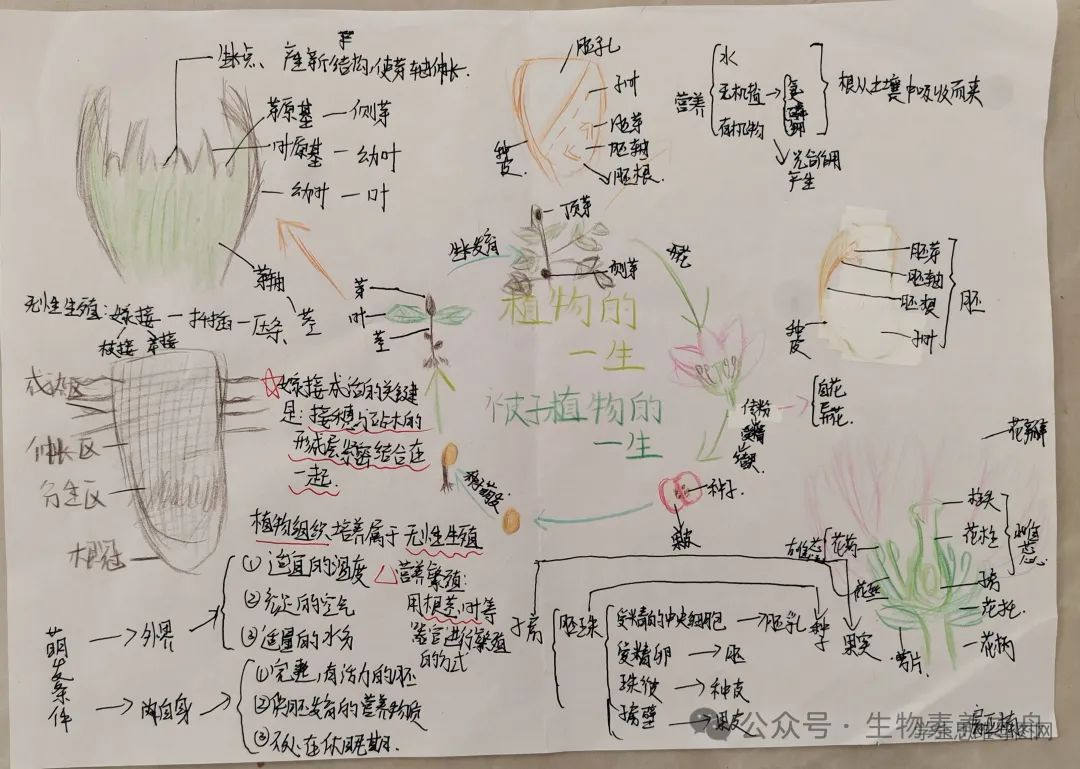 生长点、产生新结构,使芽轴伸长.
芽原基 — 侧芽
叶原基 — 幼叶
幼叶 — 叶
芽轴
茎
胚孔
子叶
胚芽
胚轴
胚根
种皮
营养
水
无机盐
有机物
氮
磷
钾
根从土壤中吸收而来
光合作用
产生
胚芽
胚轴
胚根
子叶
胚
种皮
生长发育
顶芽
侧芽
开花
芽
叶
茎
植物的
一生
被子植物的
一生
无性生殖:嫁接 — 扦插 — 压条、
枝接 芽接
成熟区
伸长区
分生区
根冠
☆嫁接成活的关键
是:接穗与砧木的
形成层紧密结合在
一起.
传粉
自花
异花
种子
果皮
植物组织培养属于无性生殖
△营养繁殖:
用根茎叶等
器官进行繁殖
的方式
萌发条件
外界
① 适宜的温度
② 充足的空气
③ 适量的水分
内自身
①完整,有活力的胚
②供胚发育的营养物质
③不处在休眠期.
子房
胚珠
受精的中央细胞 → 胚乳
受精卵 → 胚
珠被 → 种皮
子房壁 → 果皮
种子
果实
花瓣
柱头
花柱
子房
雌蕊
雄蕊
花药
花丝
花托
花柄
萼片
公众号·生物素养